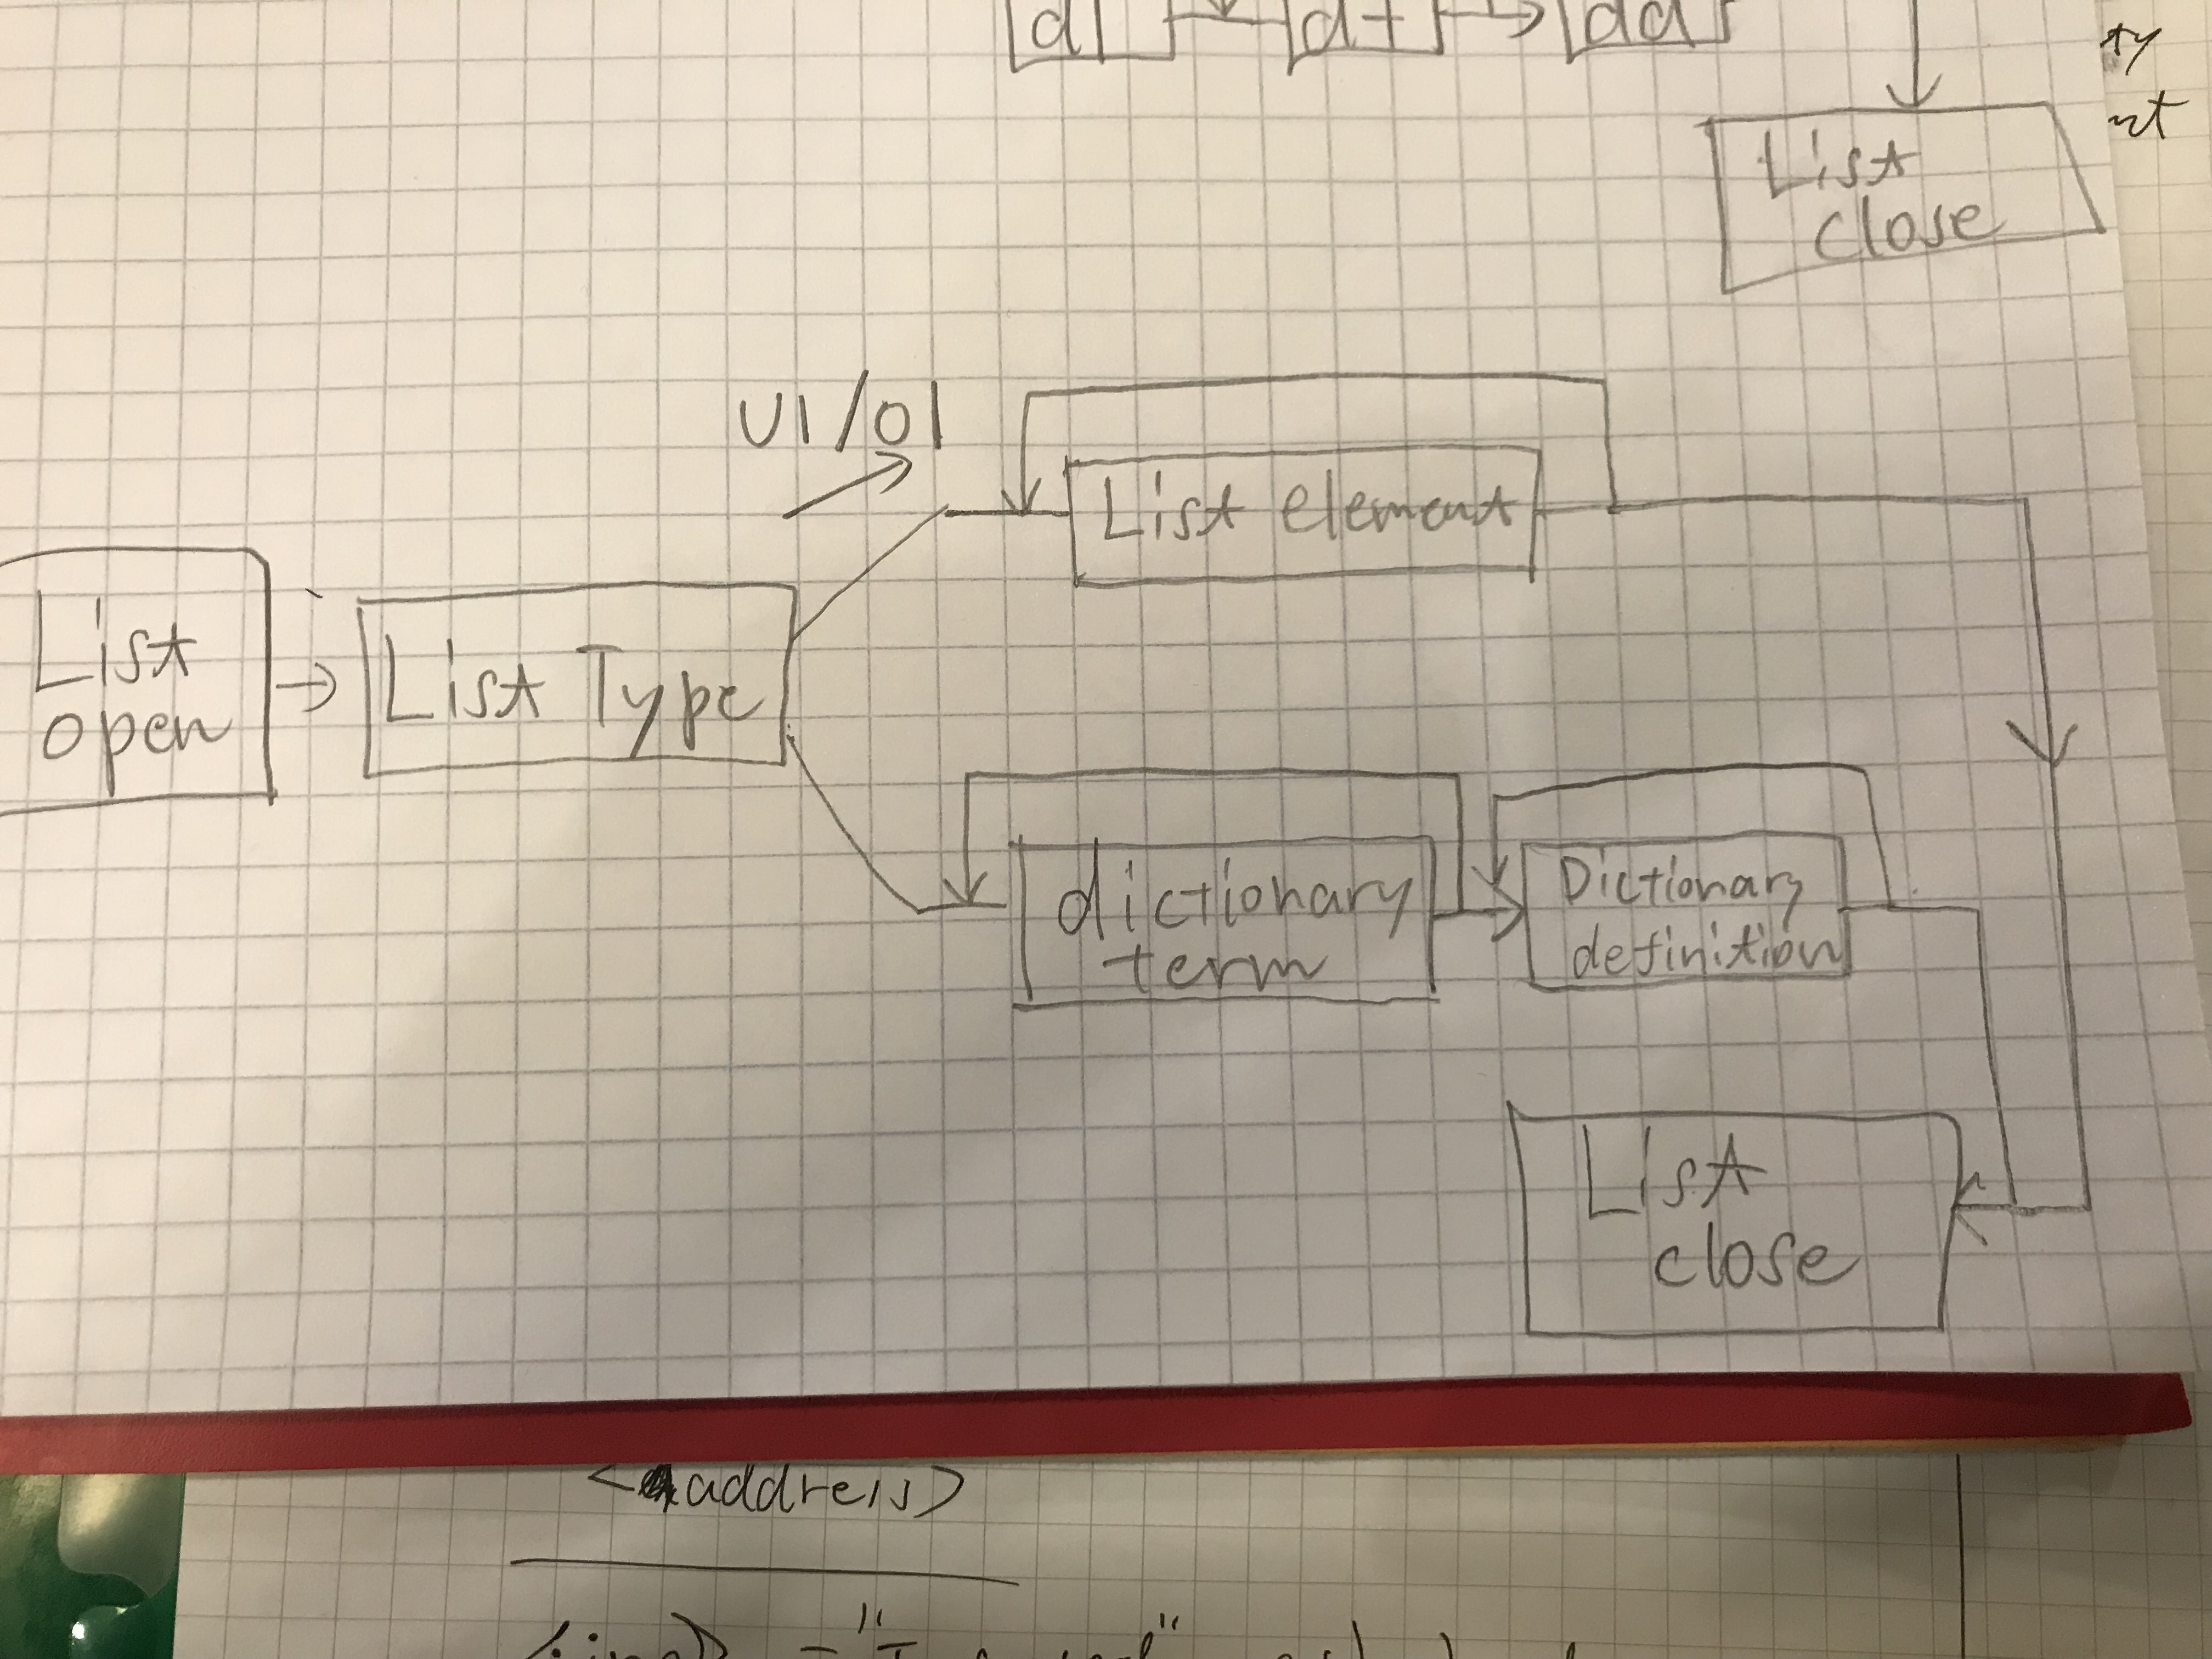 dl dt dd
List
close
ul/ol
List element
List
open
List Type
dictionary
term
Dictionary
definition
List
close
<address>